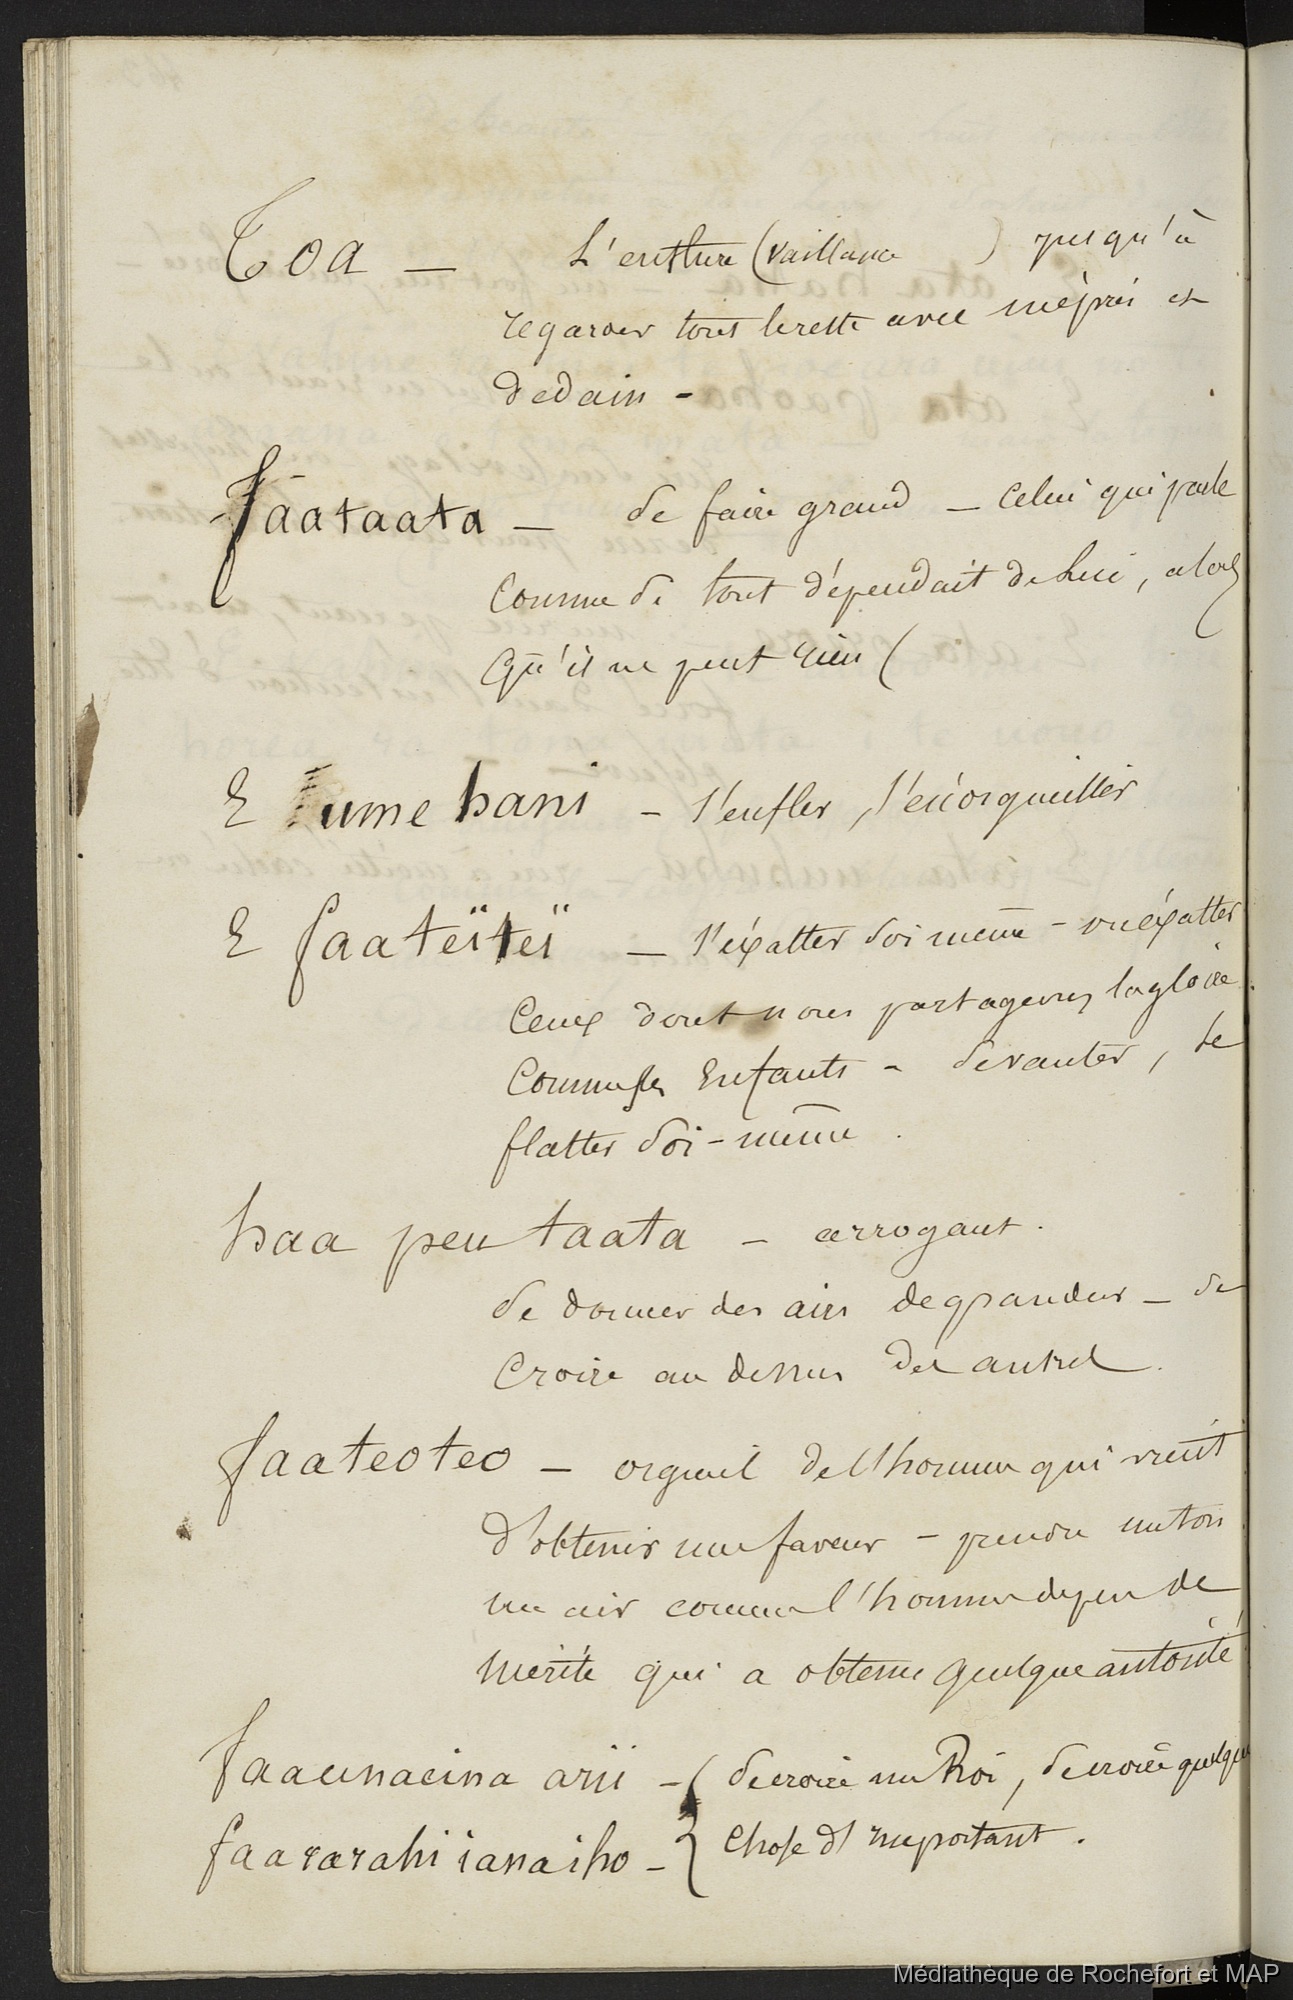 Toa — L'enflure (vaillance ) jusqu'à
regarder tout le reste avec mépris et
dedain -
faataata — se faire grand — celui qui parle
comme si tout dépendait de lui, alors
qu'il ne peut rien (
E ume hani - s'enfler, s'énorgueillir
E faateïteï — s'éxalter soi même - ou éxalter
ceux dont nous partageons la gloire
comme ses Enfants - se vanter, se
flatter soi-même .
haa peu taata - arrogant .
se donner des airs de grandeur — se
croire au dessus des autres .
faateoteo — orgueil de l'homme qui vient
d'obtenir une faveur - prendre un ton
un air comme l'homme de peu de
mérite qui a obtenu quelque autorité
faaeinaeina arii - ( se croire un Roi, se croire quelque
faararahi iana iho - { chose d'important .
Médiathèque de Rochefort et MAP